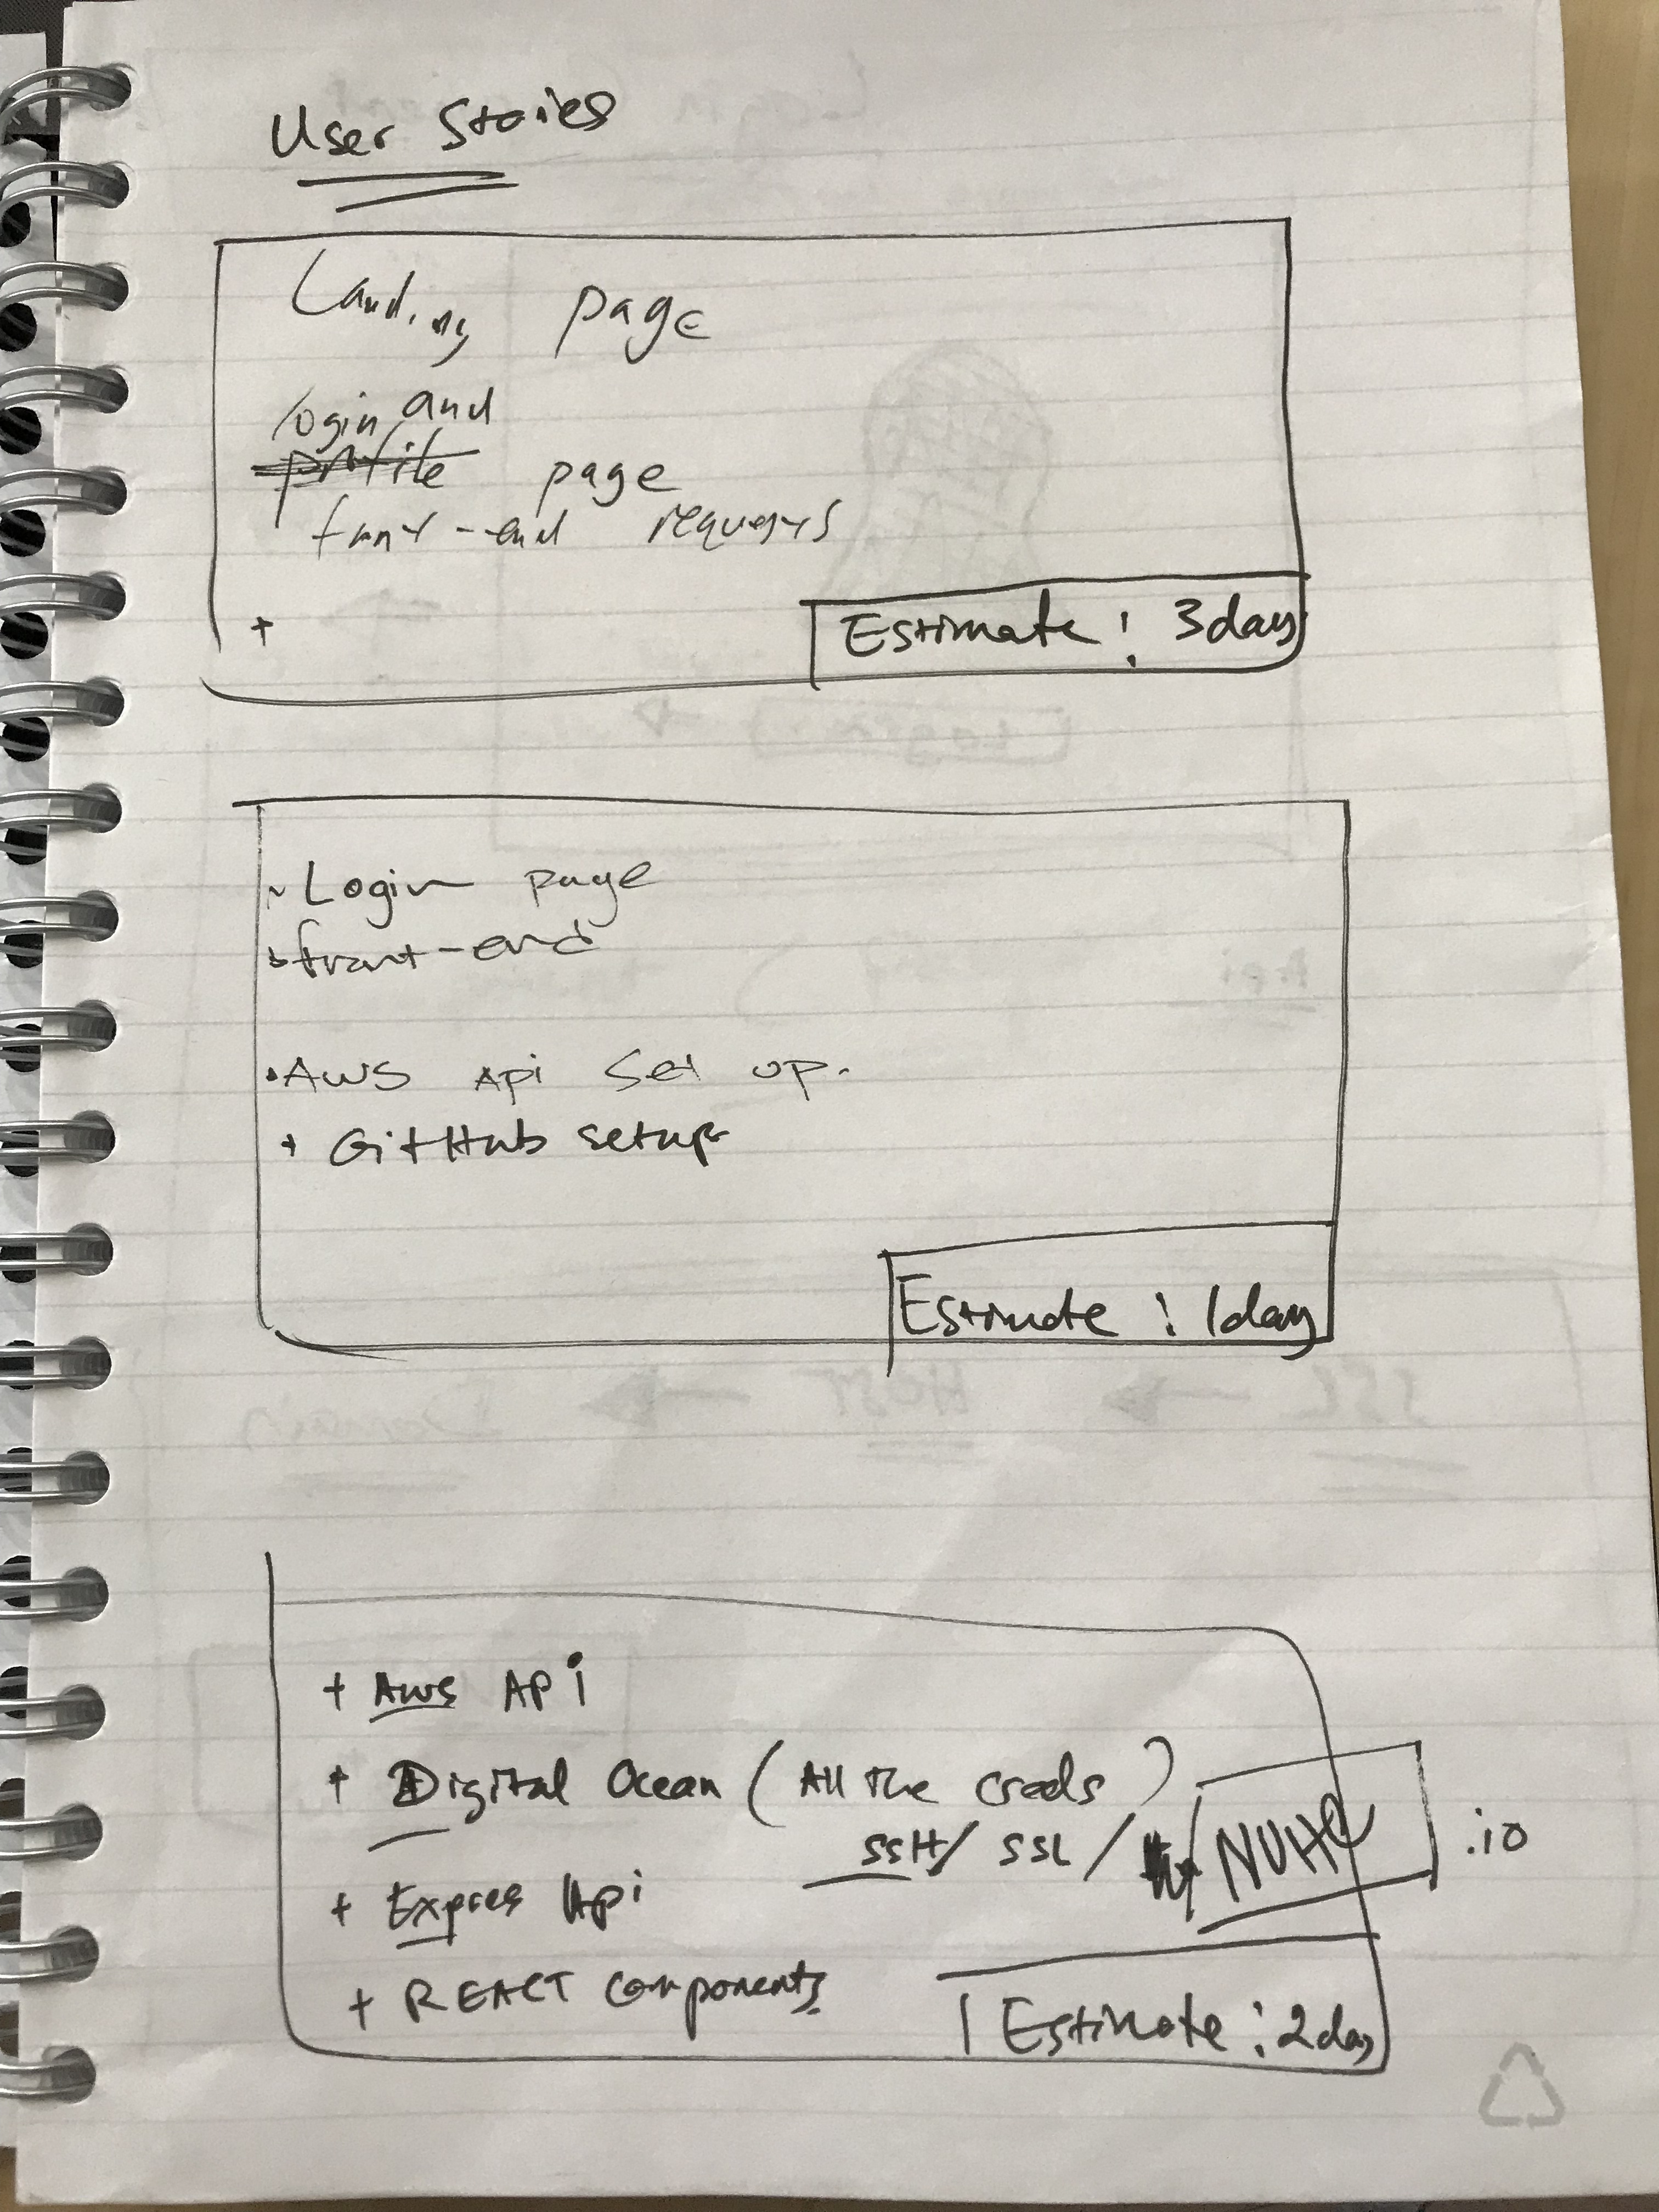 User Stories
Landing page
login and
profile page
front-end requests
+
Estimate : 3day
~ Login page
front-end
• AWS Api Set up.
+ GitHub setup
Estimate : 1day
+ Aws API
+ Digital Ocean (All the creds)
SSH / SSL / .io
+ Expres Api
+ REACT Components
Estimate : 2day